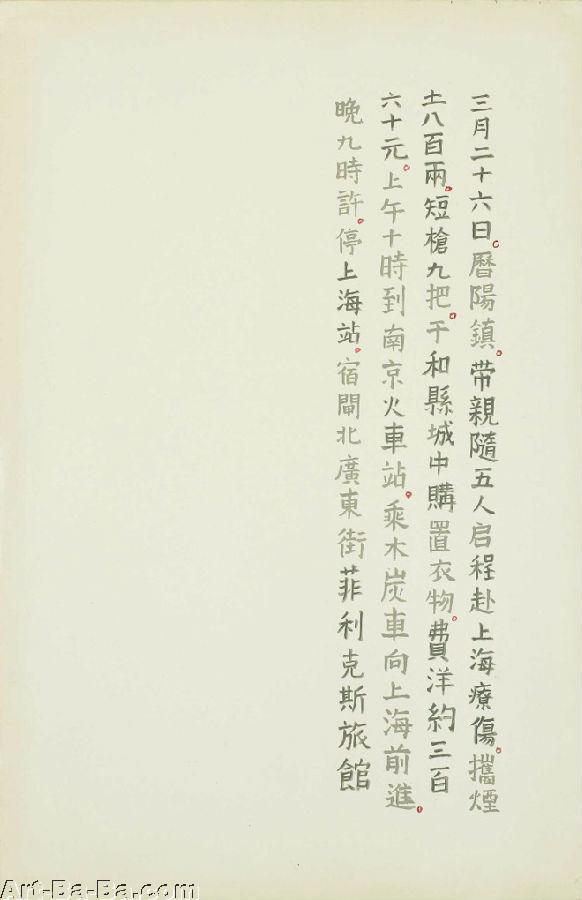 三月二十六日。曆陽鎮。带親隨五人启程赴上海療傷。攜煙
土八百兩。短槍九把。于和縣城中購置衣物。費洋約三百
六十元。上午十時到南京火車站。乘木炭車向上海前進。
晚九時許。停上海站。宿閘北廣東街菲利克斯旅館
Art-Ba-Ba.com